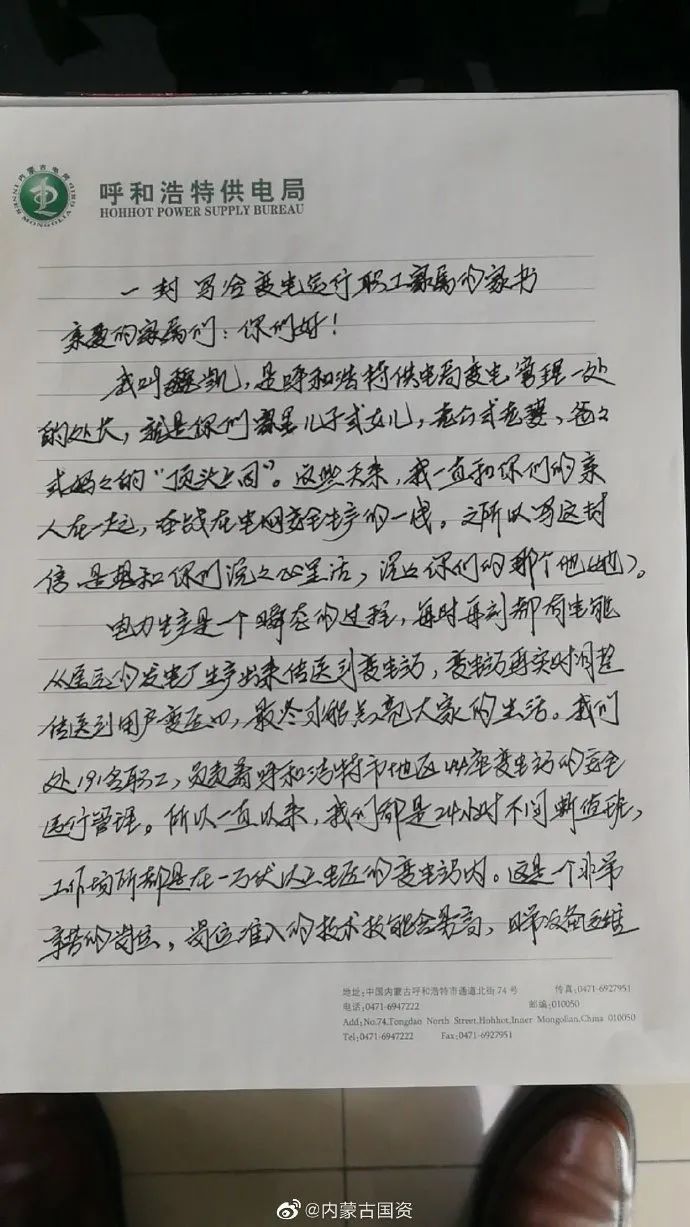 内蒙古电网
INNER MONGOLIA GRID
呼和浩特供电局
HOHHOT POWER SUPPLY BUREAU
一封写给变电运行职工家属的家书
亲爱的家属们：你们好！
我叫魏凯，是呼和浩特供电局变电管理一处
的处长，就是你们家里儿子或女儿，老公或老婆、爸爸
或妈妈的“顶头上司”。这些天来，我一直和你们的亲
人在一起，奋战在电网安全生产的一线。之所以写这封
信是想和你们说说心里话，说说你们的那个他（她）。
电力生产是一个瞬态的过程，每时每刻都有电能
从遥远的发电厂生产出来传送到变电站，变电站再实时调整
传送到用户变压，最终才能点亮大家的生活。我们
处191名职工，负责着呼和浩特市地区44座变电站的安全
运行管理。所以一直以来，我们都是24小时不间断值班，
工作场所都是在一万伏以上电压的变电站内。这是一个非常
辛苦的岗位，岗位准入的技术技能含量高，日常设备运维
地址：中国内蒙古呼和浩特市通道北街74号 传真：0471-6927951
电话：0471-6947222 邮编：010050
Add:No.74,Tongdao North Street,Hohhot,Inner Mongolian,China 010050
Tel:0471-6947222 Fax:0471-6927951
@内蒙古国资